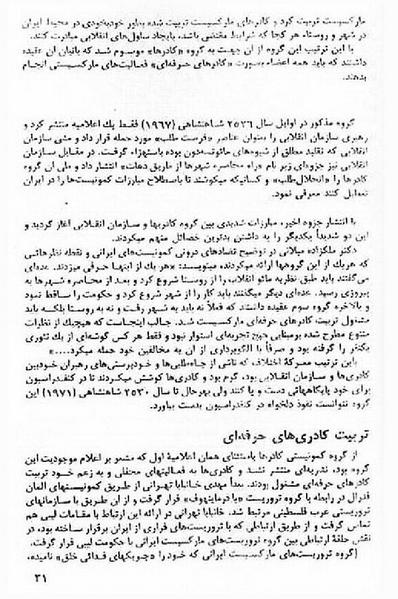 مارکسیست تربیت کرد و کادرهای مارکسیست تربیت شده بطور خودبخودی در محیط ایران
در شهر و روستا، هر کجا که شرایط مقتضی باشد، بایجاد سلول‌های انقلابی مبادرت کنند.
با این ترتیب این گروه از آن جهت به گروه «کادرها» موسوم شد که بانیان آن عقیده
داشتند که باید همه اعضاء بصورت «کادرهای حرفه‌ای» فعالیت‌های مارکسیستی انجام
بدهند.
گروه مذکور در اوایل سال ۲۵۲۶ شاهنشاهی (۱۹۶۷) فقط یک اعلامیه منتشر کرد و
رهبری سازمان انقلابی را بعنوان عناصر «فرصت طلب» مورد حمله قرار داد و مشی سازمان
انقلابی که تقلید مطلق از شیوه‌های مائوتسه‌دون بوده باستهزاء گرفت. در مقابل سازمان
انقلابی نیز جزوه‌ای زیر نام «راه محاصره شهرها از طریق دهات» انتشار داد و طی آن گروه
کادرها را «انحلال‌طلب» و کسانیکه میکوشند تا باصطلاح مبارزات کمونیست‌ها را در ایران
تعطیل کنند معرفی نمود.
با انتشار جزوه اخیر، مبارزات شدیدی بین گروه کادریها و سازمان انقلابی آغاز گردید و
این دو شدیداً یکدیگر را به داشتن بدترین خصائل متهم میکردند.
دکتر ملکزاده میلانی در توضیح تضادهای درونی کمونیست‌های ایرانی و نقطه نظرهائی
که هریک از این گروهها ارائه میکردند، مینویسد: «هر یک از اینها حرفی میزدند. عده‌ای
می‌گفتند باید طبق نظریه مائو انقلاب را از روستا شروع کرد و بعد از محاصره شهرها به
پیروزی رسید. عده‌ای دیگر میگفتند باید کار را از شهر شروع کرد و حکومت را ساقط نمود
و بالاخره گروه سوم عقیده داشتند که فعلاً نه باید به شهر رفت و نه به روستا بلکه باید
مشغول تربیت کادرهای حرفه‌ای مارکسیست شد. جالب اینجاست که هیچیک از نظرات
متنوع مطرح شده برمبنای هیچ تجربه‌ای استوار نبود و فقط هر کس گوشه‌ای از یک تئوری
یکنفر را گرفته بود و صرفاً با الگوبرداری از آن به مخالفین خود حمله میکرد....»
باین ترتیب معرکهٔ اختلاف که ناشی از جاه‌طلبی‌ها و خودپرستی‌های رهبران خودبین
کادری‌ها و سازمان انقلابی بود، گرم بود و کادری‌ها کوشش میکردند تا در کنفدراسیون
برای خود پایگاههائی دست و پا کنند ولی بهرحال تا سال ۲۵۳۰ شاهنشاهی (۱۹۷۱) این
گروه نتوانست نفوذ دلخواه در کنفدراسیون بدست بیاورد.
تربیت کادری‌های حرفه‌ای
از گروه کمونیستی کادرها باستثنای همان اعلامیهٔ اول که مشعر بر اعلام موجودیت این
گروه بود، نشریه‌ای منتشر نشد و کادری‌ها به فعالیتهای محفلی و به زعم خود تربیت
کادرهای حرفه‌ای مشغول بودند. بعداً مهدی خانبابا تهرانی از طریق کمونیستهای آلمان
فدرال در رابطه با گروه تروریست «بادرماینهوف» قرار گرفت و از آن طریق با سازمانهای
تروریستی عرب فلسطینی مرتبط شد. خانبابا تهرانی در ارائه این ارتباط با مقامات لیبی هم
تماس گرفت و از طریق ارتباطی که با تروریست‌های فراری از ایران برقرار ساخته بود، در
نقش حلقهٔ ارتباطی بین گروه تروریست‌های مارکسیست ایرانی با حکومت لیبی قرار گرفت.
(گروه تروریست‌های مارکسیست ایرانی که خود را «چریکهای فدائی خلق» نامیده،
۳۱